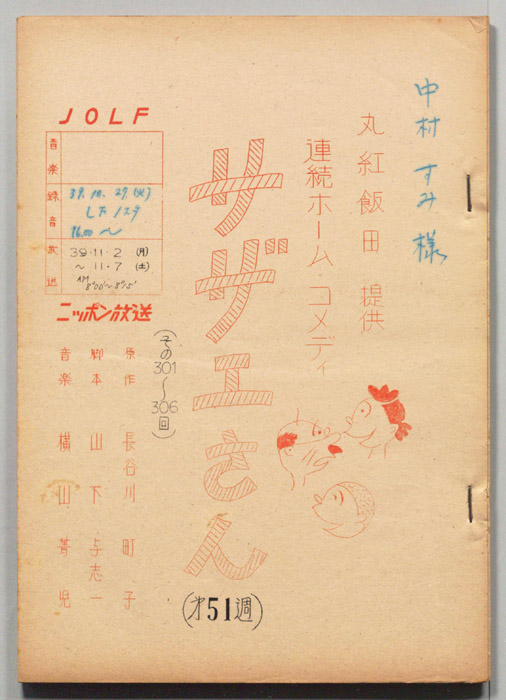 中村すみ様
丸紅飯田 提供
連続ホーム・コメディ
サザエさん
(その301〜306回)
(第51週)
JOLF
音楽録音
39.10.27(火)
16.00〜
放送
39・11・2(月)
〜11・7(土)
AM
8°00'〜8°15'
ニッポン放送
原作 長谷川町子
脚本 山下与志一
音楽 横山菁児